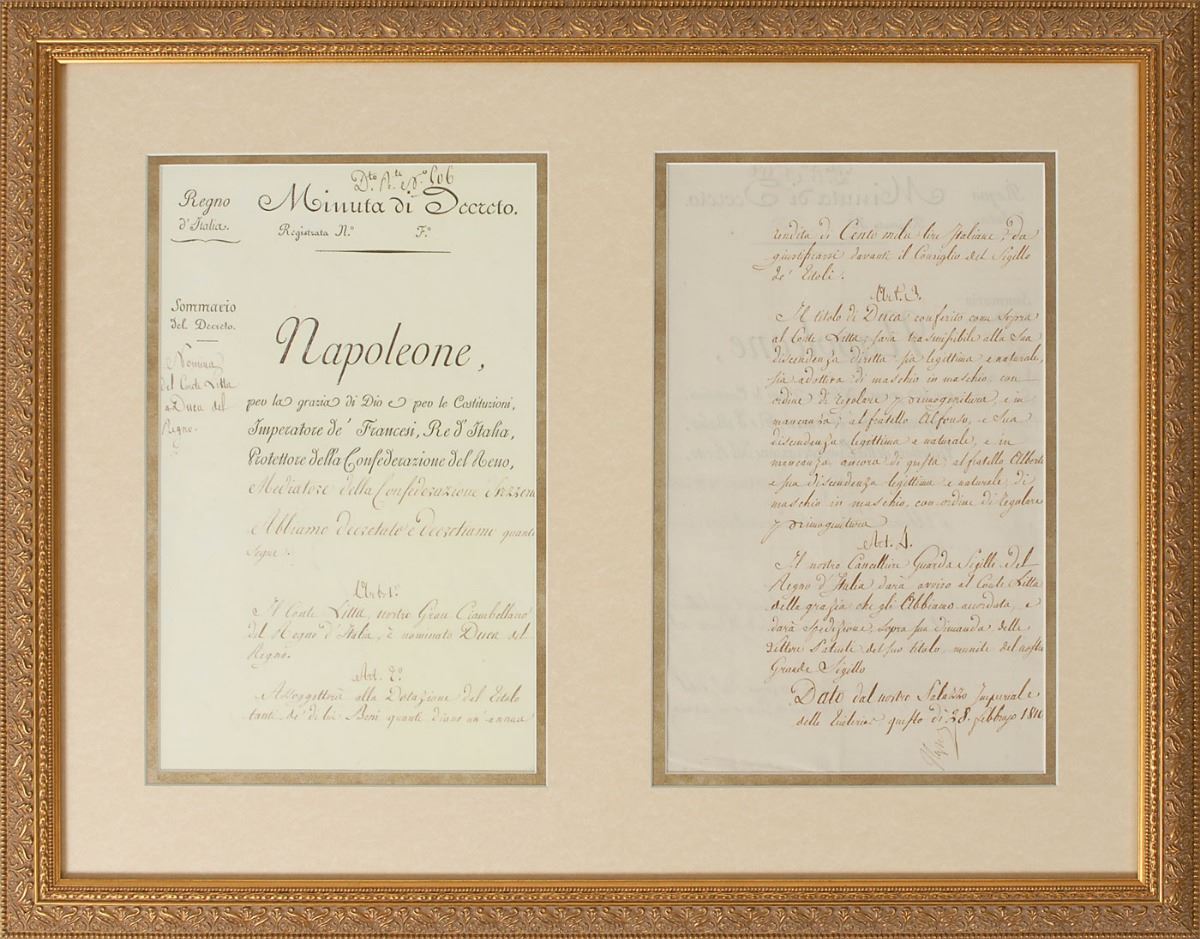 Regno
d'Italia.
Minuta di Decreto.
Registrata N.º F.º
Sommario
del Decreto.
Nomina
del Conte Litta
a Duca del
Regno.
Napoleone,
per la grazia di Dio e per le Costituzioni,
Imperatore de' Francesi, Re d'Italia,
Protettore della Confederazione del Reno,
Mediatore della Confederazione Svizzera
Abbiamo decretato e Decretiamo quanto
segue:
Art. 1º
Il Conte Litta, nostro Gran Ciambellano
del Regno d'Italia, è nominato Duca del
Regno.
Art. 2º
Assoggetterà alla Dotazione del Titolo
tanti de' di lui Beni quanti diano un' annua
rendita di Cento mila lire Italiane, da
giustificarsi davanti il Consiglio del Sigillo
de' Titoli.
Art. 3.
Il titolo di Duca conferito come sopra
al Conte Litta, sarà trasmissibile alla sua
discendenza diretta sia legittima e naturale,
sia adottiva di maschio in maschio, con
ordine di regolare primogenitura, e in
mancanza, al fratello Alfonso, e sua
discendenza legittima e naturale, e in
mancanza ancora di questa, al fratello Alberto
e sua discendenza legittima e naturale di
maschio in maschio, con ordine di regolare
primogenitura
Art. 4.
Il nostro Cancelliere Guarda Sigilli del
Regno d'Italia darà avviso al Conte Litta
della grazia che gli Abbiamo accordata, e
darà spedizione, sopra sua dimanda delle
Lettere Patente del suo titolo, munite del nostro
Grande Sigillo
Dato dal nostro Palazzo Imperiale
delle questo dì 28. Febbrajo 1810